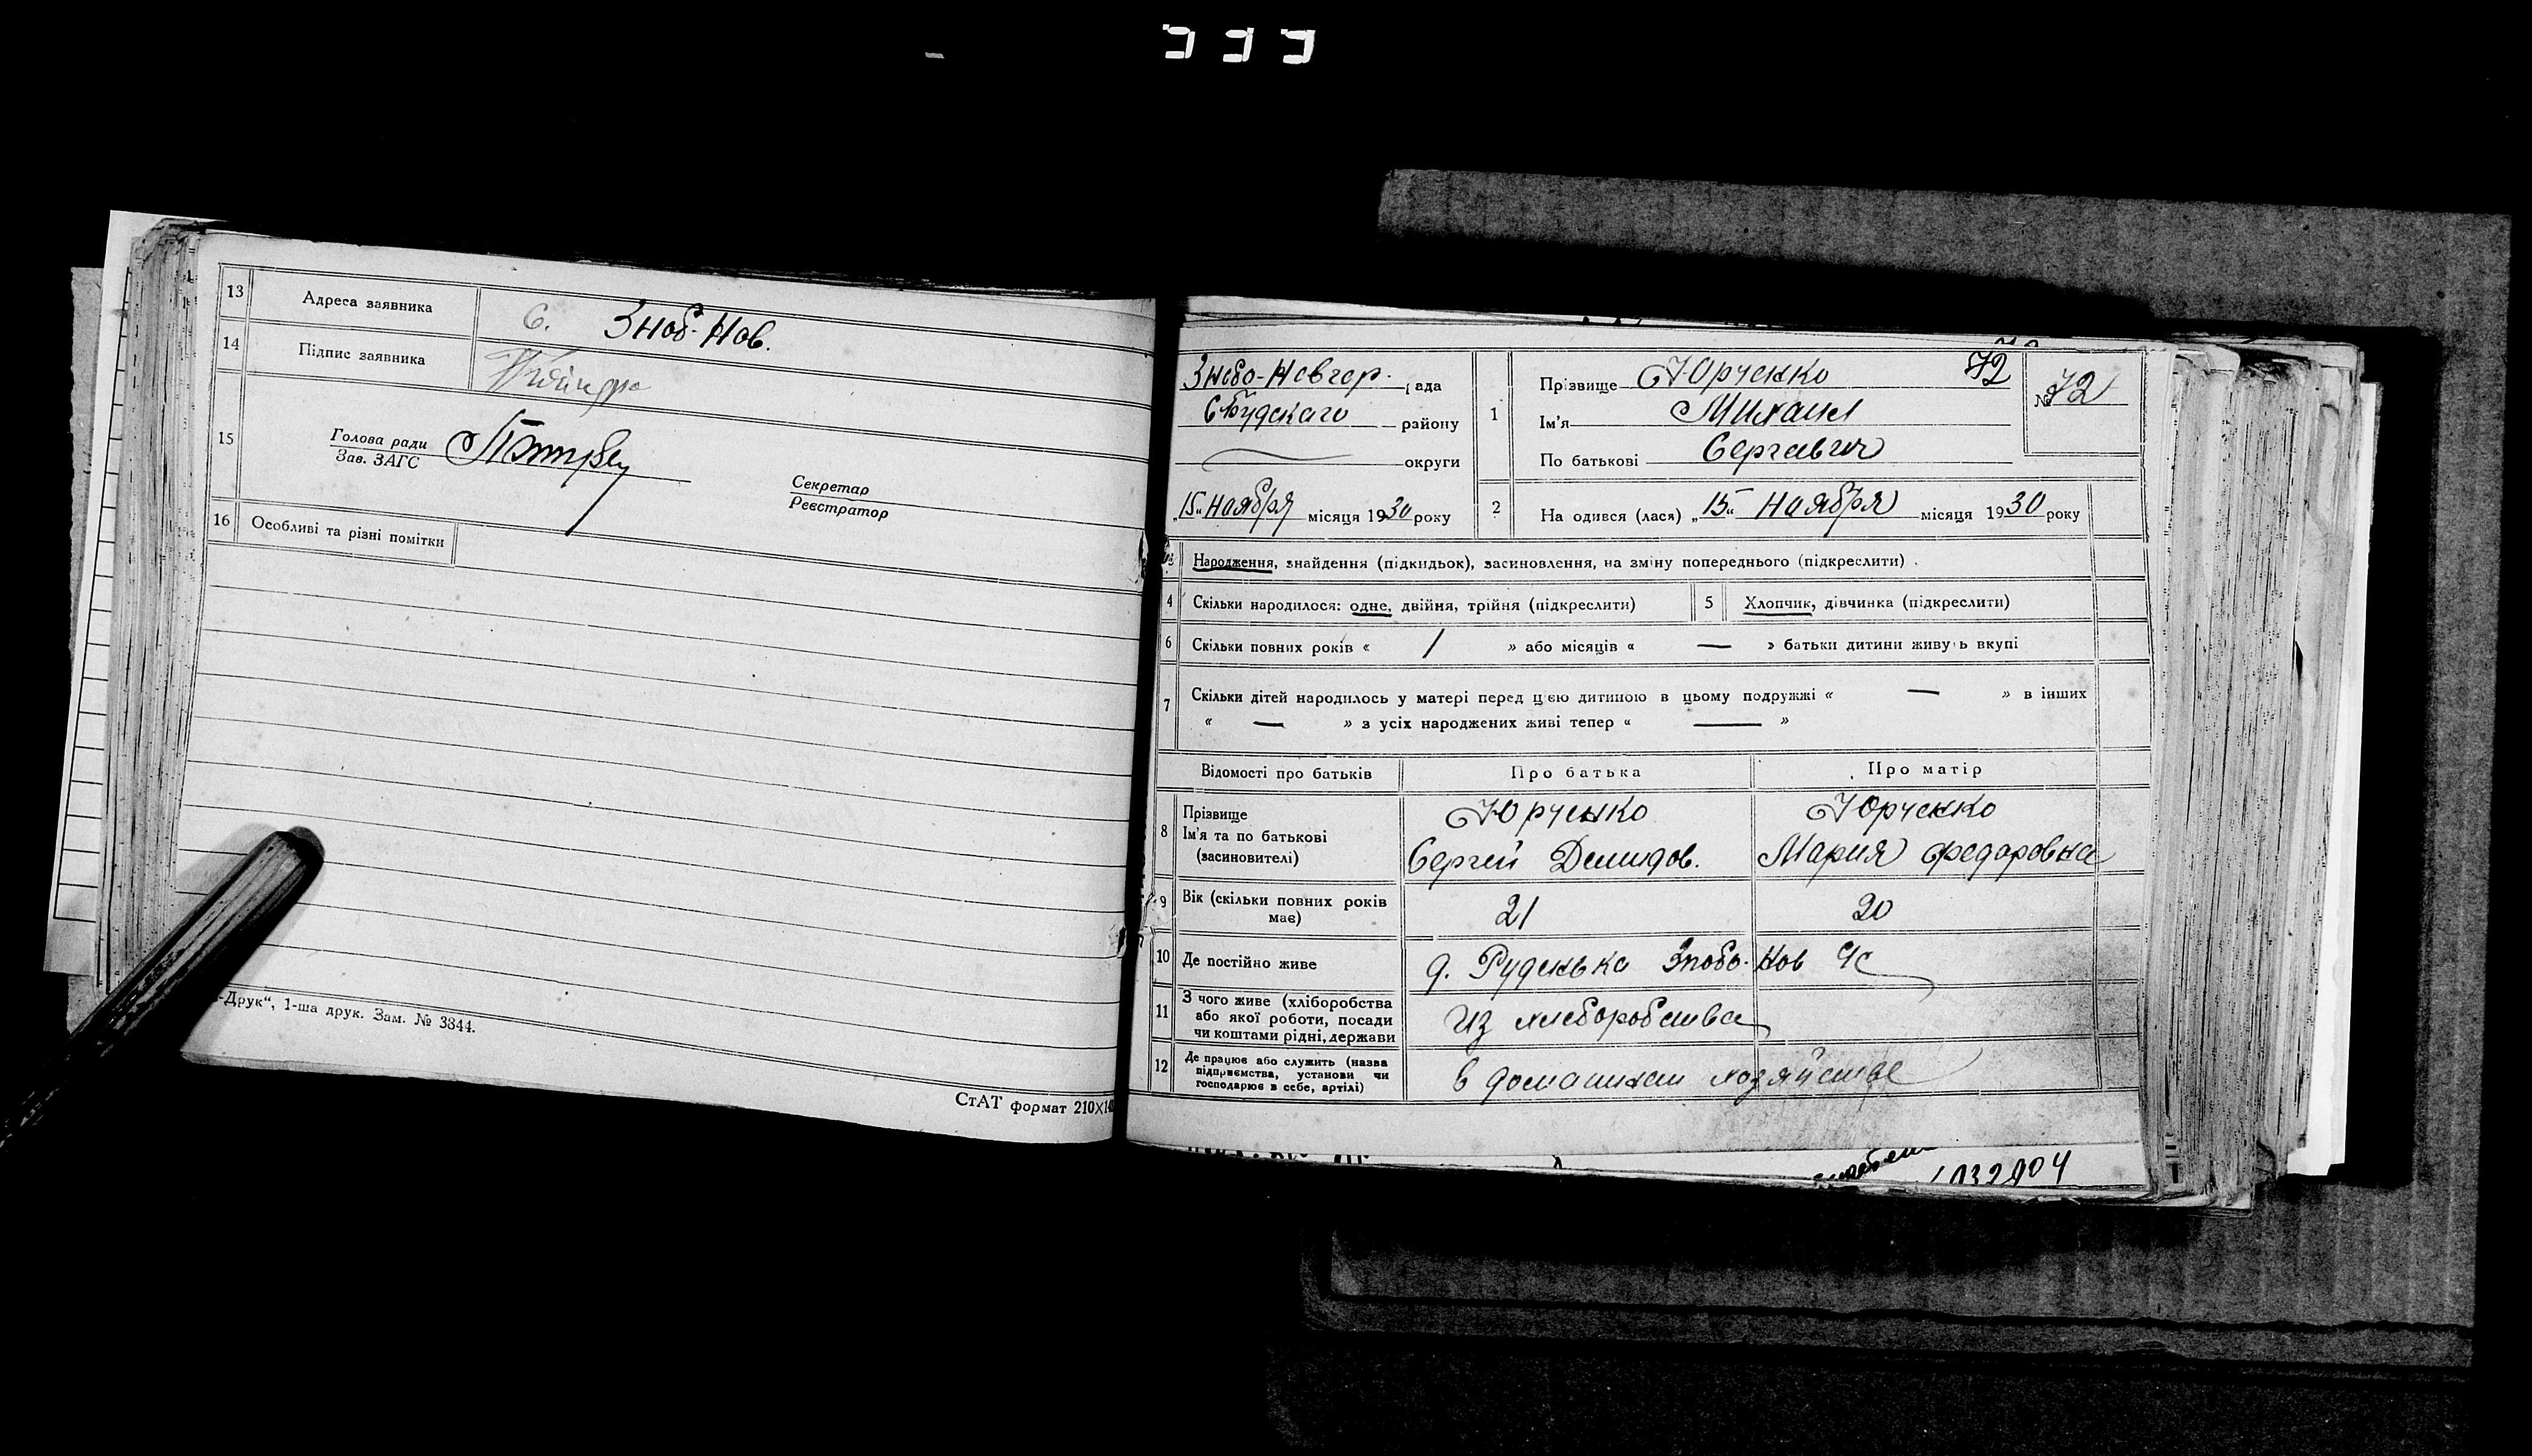 13 Адреса заявника с. Зноб-Нов.
14 Підпис заявника
15 Голова ради
Зав. ЗАГС
Секретар
Реєстратор
16 Особливі та різні помітки
-Друк“, 1-ша друк. Зам. № 3844.
СтАТ формат 210X14
Знобо-Новгор. рада
СБудскаго району
округи
„15“ Ноября місяця 1930 року
1 Прізвище Юрченко 72
Ім'я Михаил
По батькові Сергеевич
№ 72
2 На одився (лася) „15“ Ноября місяця 1930 року
3 Народження, знайдення (підкидьок), засиновлення, на зміну попереднього (підкреслити)
4 Скільки народилося: одне, двійня, трійня (підкреслити) 5 Хлопчик, дівчинка (підкреслити)
6 Скільки повних років « / » або місяців « — » батьки дитини живуть вкупі
7 Скільки дітей народилось у матері перед цією дитиною в цьому подружжі « — » в інших
« — » з усіх народжених живі тепер « — »
Відомості про батьків Про батька Про матір
8 Прізвище Юрченко Юрченко
Ім'я та по батькові Сергей Демидов. Мария Федоровна
(засиновителі)
9 Вік (скільки повних років має) 21 20
10 Де постійно живе д. Руденька Знобо-Нов ЧС
11 З чого живе (хліборобства
або якої роботи, посади
чи коштами рідні, держави
из хлеборобства
12 Де працює або служить (назва
підприємства, установи чи
господарює в себе, артілі)
в домашнем хозяйстве
1032904